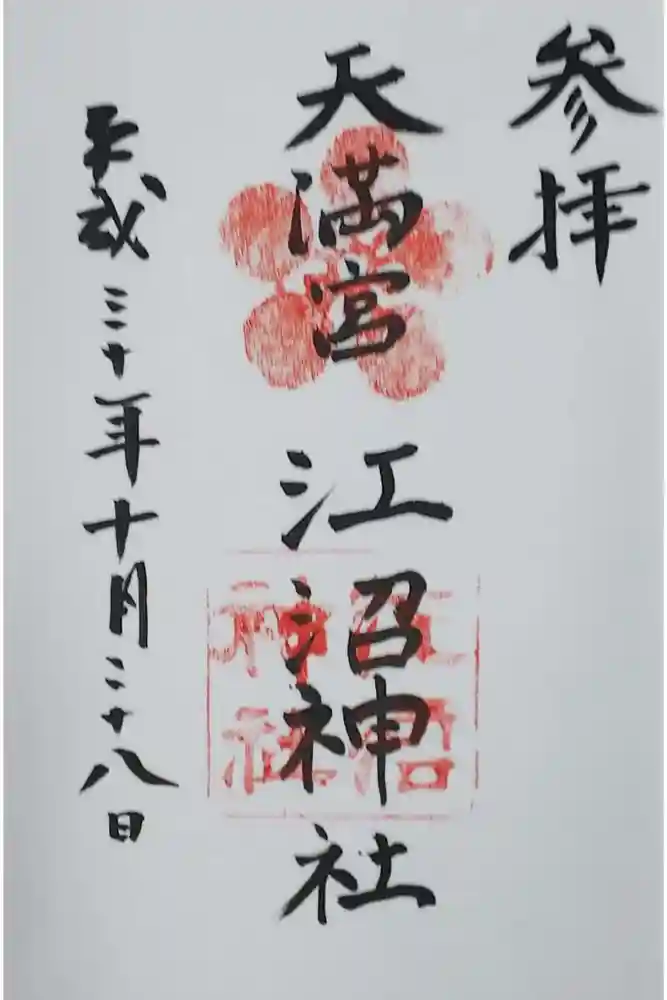 参拝
天満宮
江沼神社
平成三十年十月二十八日
江沼
神社